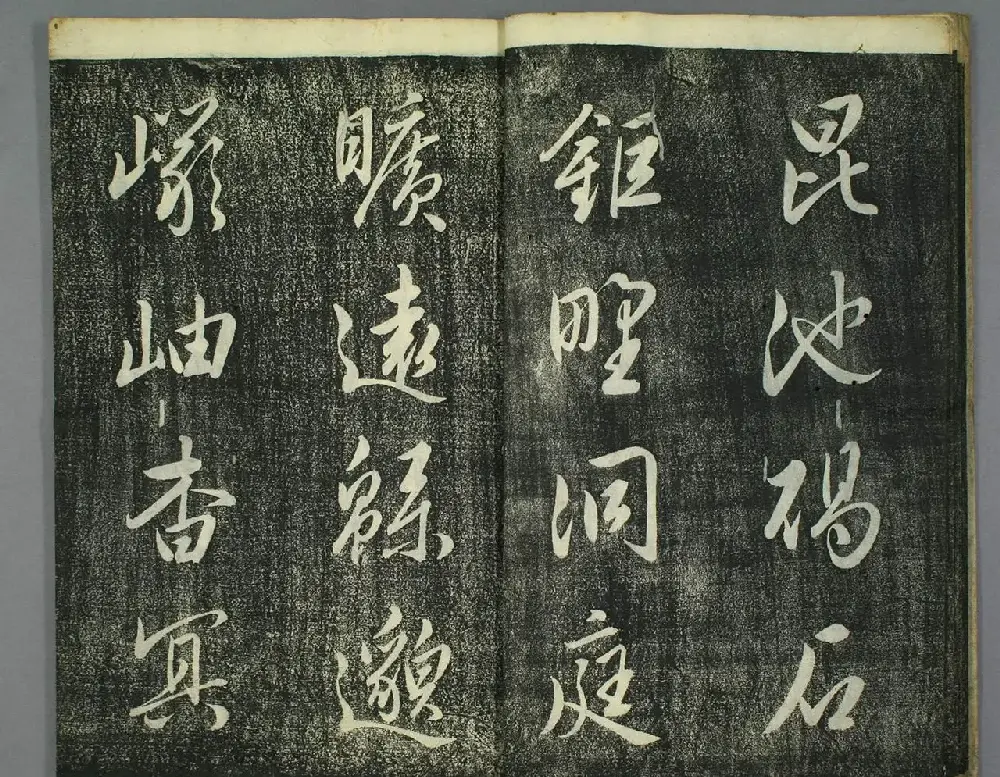 昆池碣石
鉅野洞庭
曠遠緜邈
巖岫杳冥